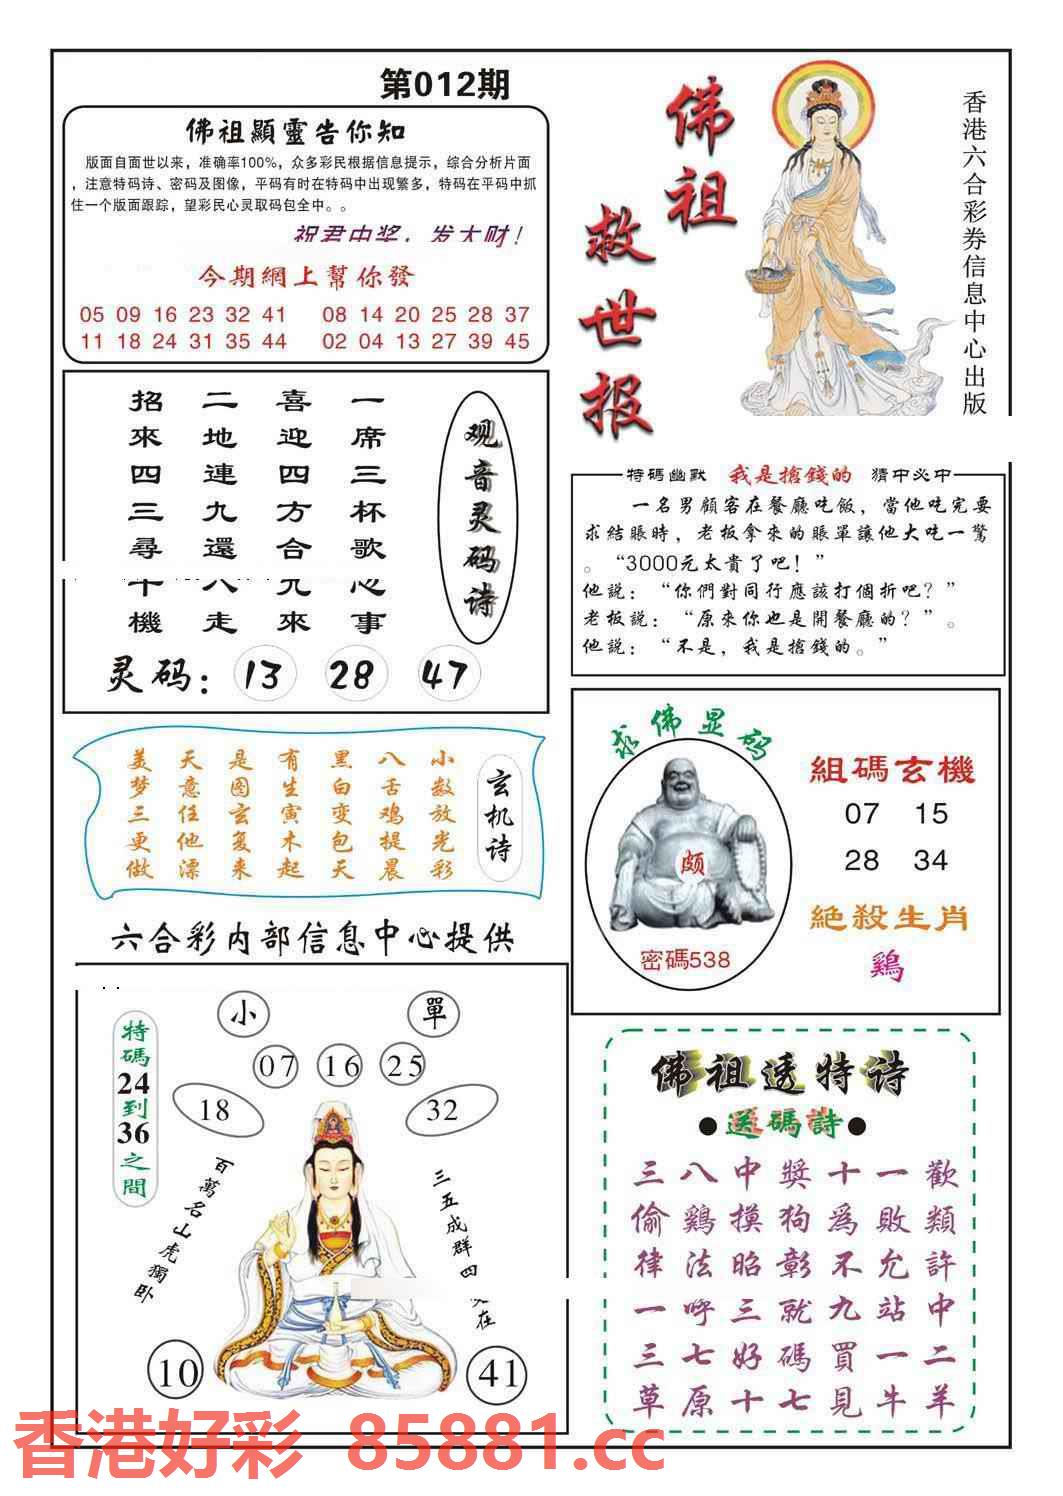 第012期
佛祖顯靈告你知
版面自面世以来，准确率100%，众多彩民根据信息提示，综合分析片面
，注意特码诗、密码及图像，平码有时在特码中出现繁多，特码在平码中抓
住一个版面跟踪，望彩民心灵取码包全中。。
祝君中奖，发大财！
今期網上幫你發
05 09 16 23 32 41 08 14 20 25 28 37
11 18 24 31 35 44 02 04 13 27 39 45
佛祖
救世报
香港六合彩券信息中心出版
观音灵码诗
一席三杯歌心事
喜迎四方合九來
二地連九還八走
招來四三尋十機
灵码：13 28 47
特碼幽默 我是搶錢的 猜中必中
一名男顧客在餐廳吃飯，當他吃完要
求結賬時，老板拿來的賬單讓他大吃一驚
。“3000元太貴了吧！”
他説：“你們對同行應該打個折吧？”
老板説：“原來你也是開餐廳的？”。
他説：“不是，我是搶錢的。”
玄机诗
小数放光彩
八舌鸡提晨
黑白变包天
有生寅木起
是图玄复来
天意任他漂
美梦三更做
求佛显码
颇
密碼538
組碼玄機
07 15
28 34
絕殺生肖
鷄
六合彩内部信息中心提供
特碼24到36之間
小 單
07 16 25
18 32
百萬名山虎獨卧
三五成群四
在
10 41
佛祖透特诗
●送碼詩●
歡類許中二羊
一敗允站一牛
十爲不九買見
獎狗彰就碼七
中摸昭三好十
八鷄法呼七原
三偷律一三草
香港好彩 85881.cc